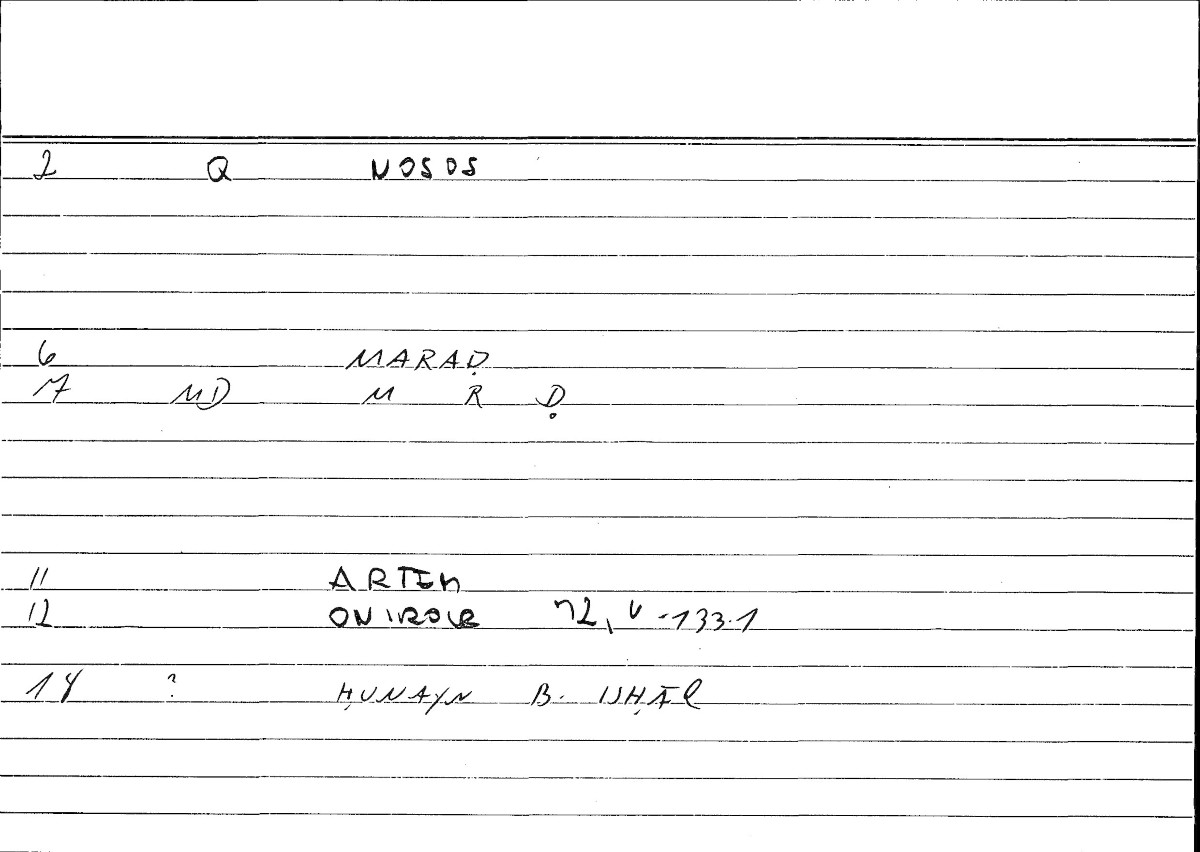 2 Q NOSOS
6 MARAḌ
7 MD M R Ḍ
11 ARTEM
12 ONIROCR 72, -133.1
14 ? ḤUNAYN B. ISḤĀQ